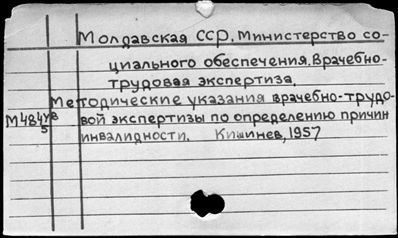 Молдавская ССР. Министерство со-
циального обеспечения. Врачебно-
трудовая экспертиза.
Методические указания врачебно-трудо-
вой экспертизы по определению причин
инвалидности. Кишинев, 1957
М484